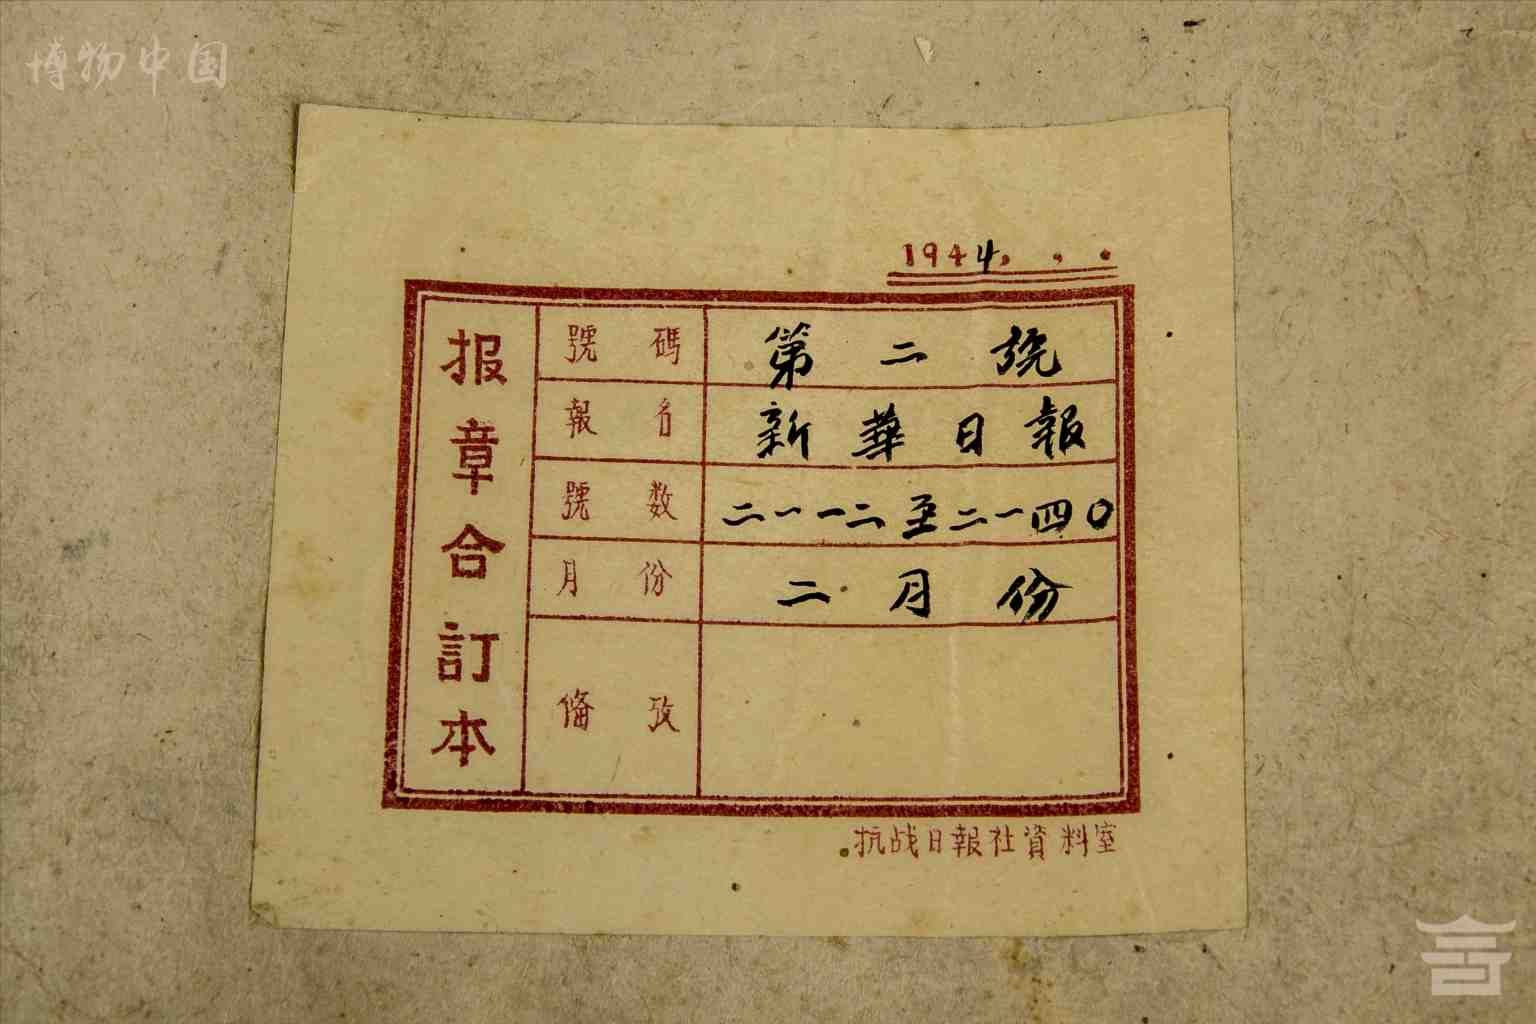 博物中国
1944. . .
报章合訂本
號碼 第二號
報名 新華日報
號数 二一一二至二一四〇
月份 二月份
俻攷
抗战日報社資料室